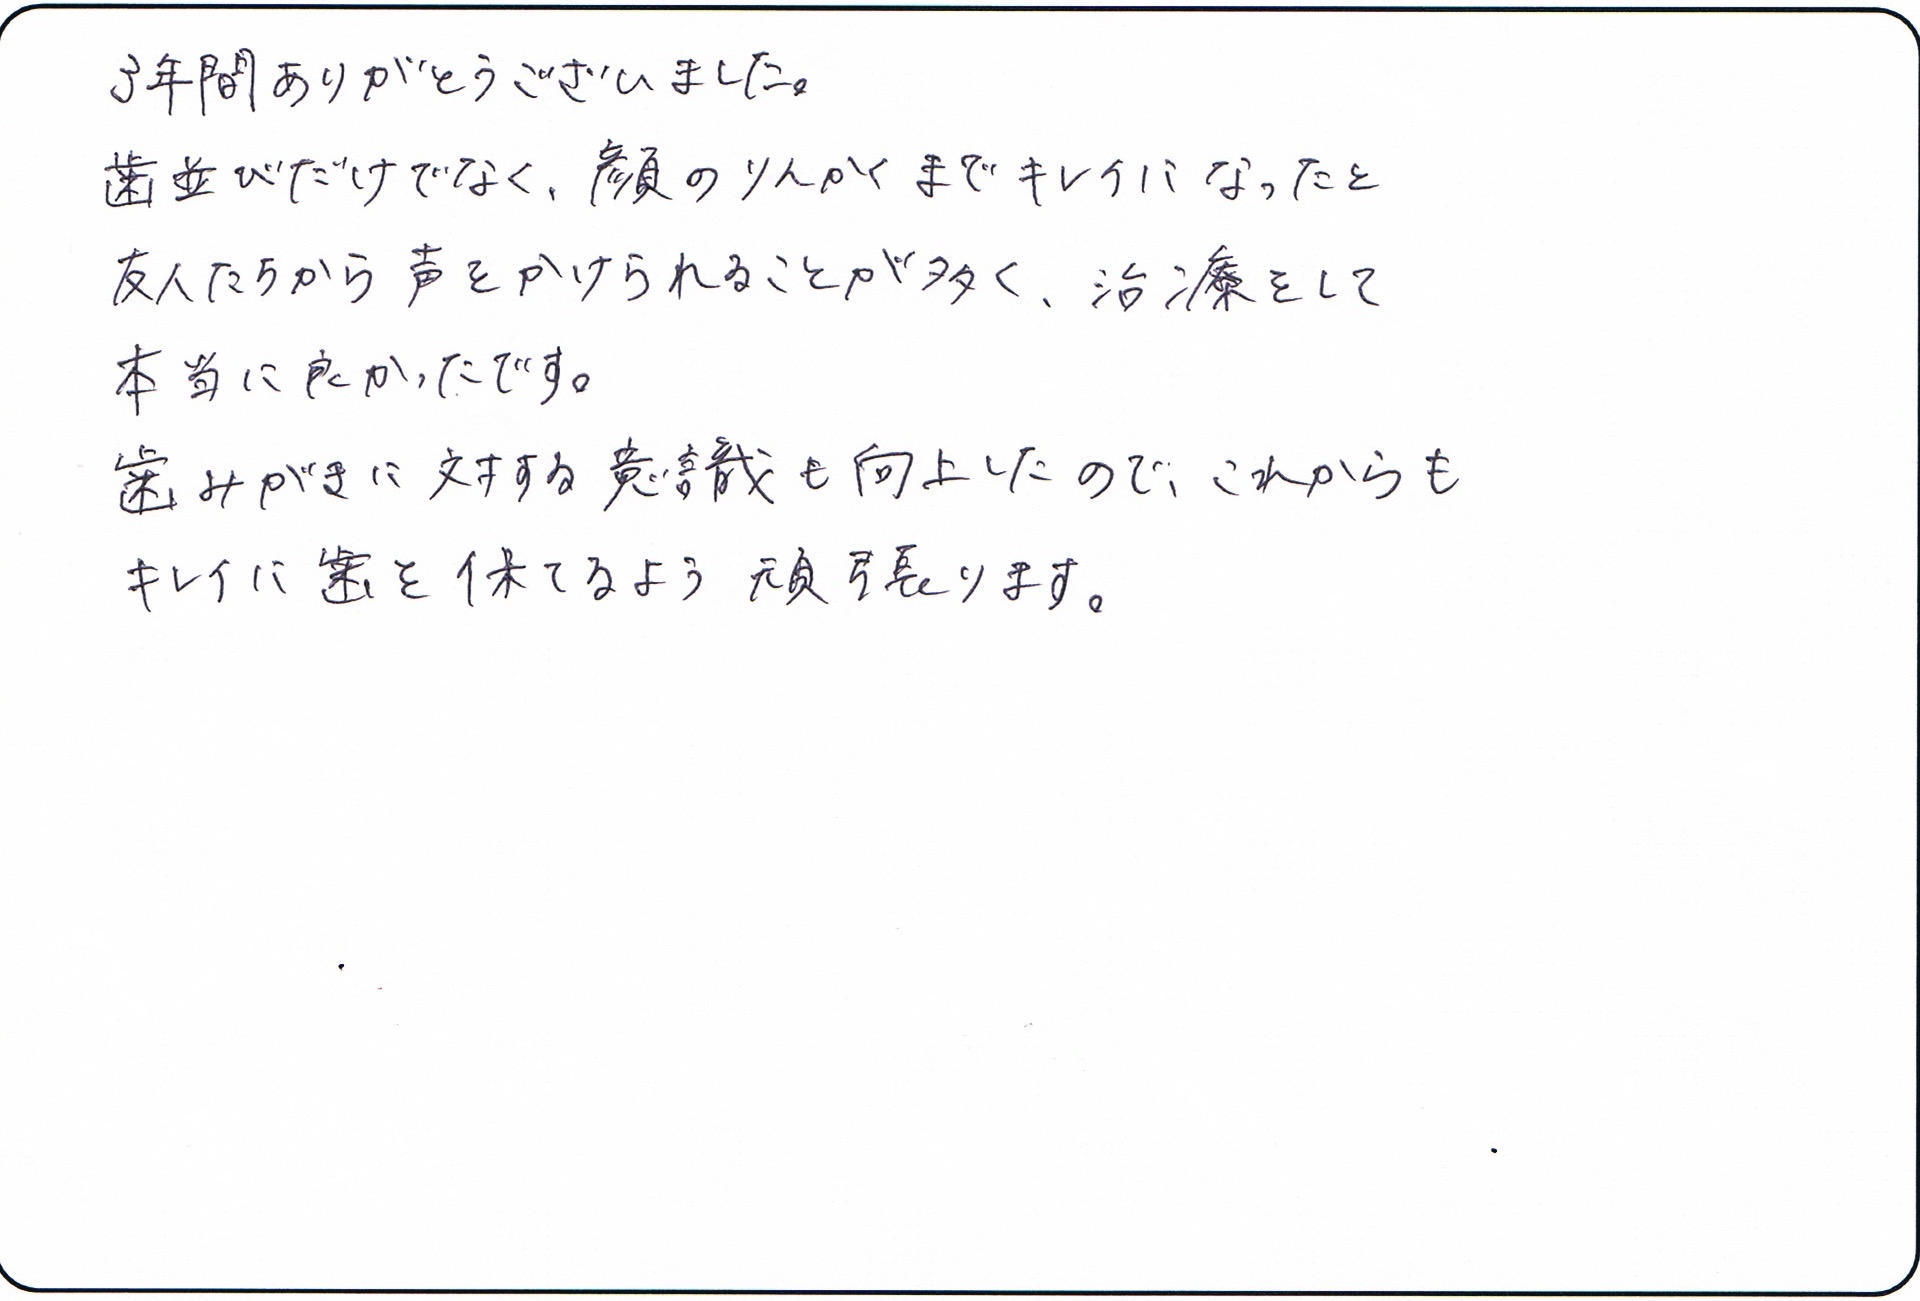 3年間ありがとうございました。
歯並びだけでなく、顔のりんかくまでキレイになったと
友人たちから声をかけられることが多く、治療をして
本当に良かったです。
歯みがきに対する意識も向上したので、これからも
キレイに歯を保てるよう頑張ります。